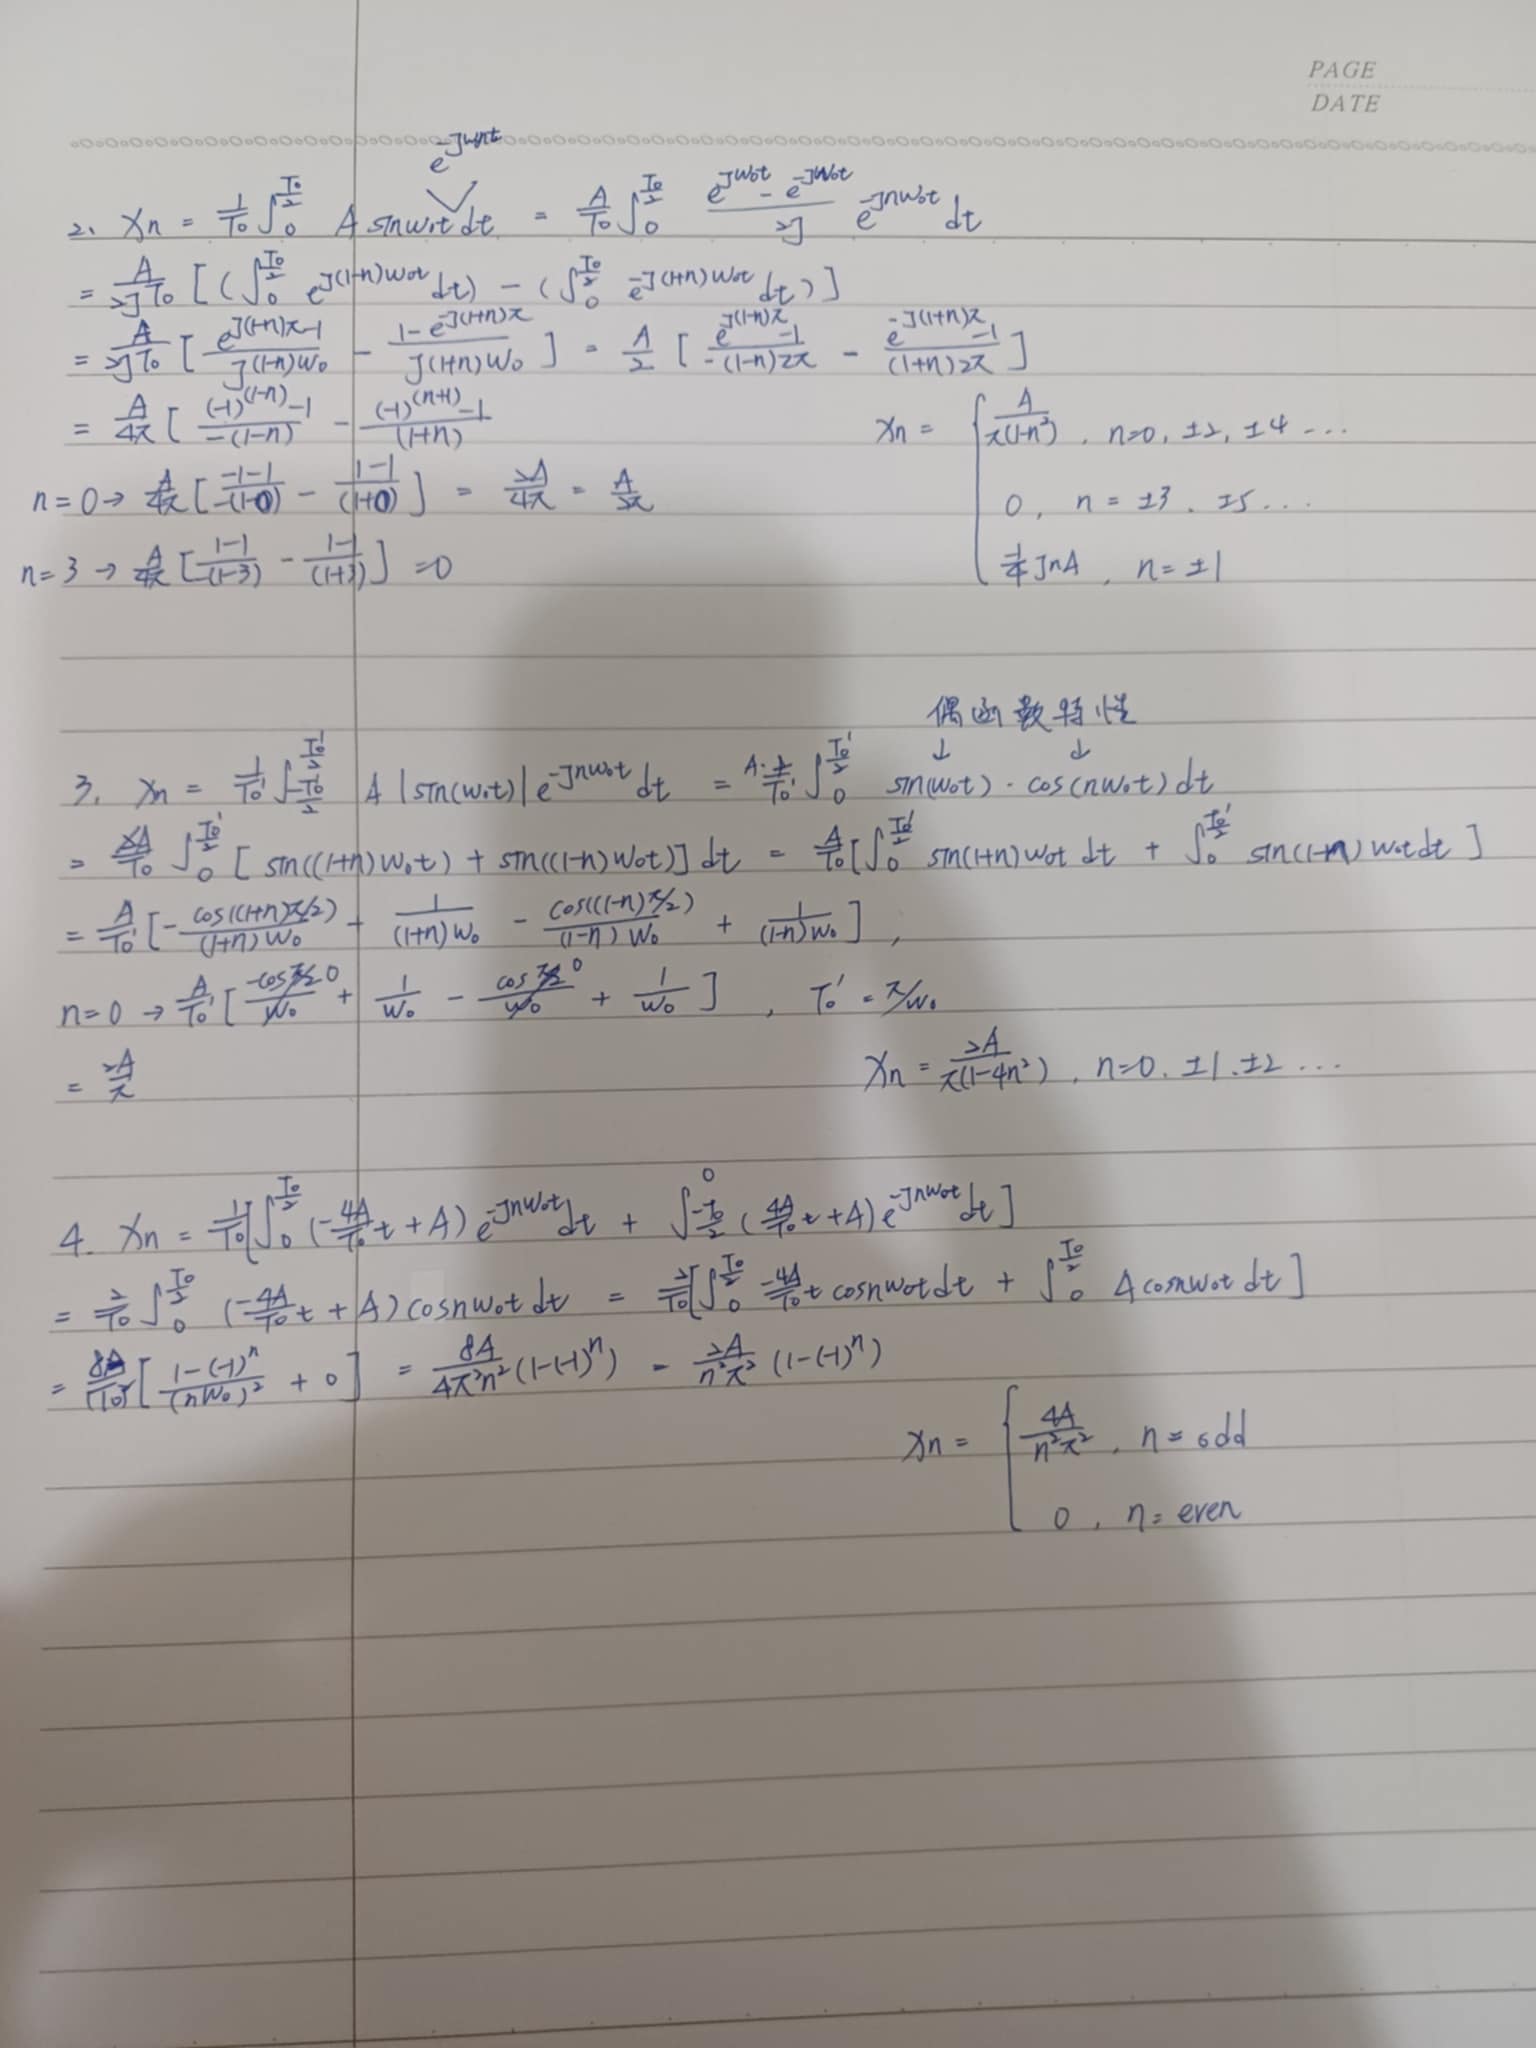 PAGE
DATE
e^{-jnω₀t}
2. Xn = 1/T₀ ∫₀^{T₀/2} A sinω₀t dt = A/T₀ ∫₀^{T₀/2} (e^{jω₀t} - e^{-jω₀t})/2j e^{-jnω₀t} dt
= A/2jT₀ [(∫₀^{T₀/2} e^{j(1-n)ω₀t} dt) - (∫₀^{T₀/2} e^{-j(1+n)ω₀t} dt)]
= A/2jT₀ [(e^{j(1-n)π}-1)/(j(1-n)ω₀) - (1-e^{-j(1+n)π})/(j(1+n)ω₀)] = A/2 [(e^{j(1-n)π}-1)/(-(1-n)2π) - (e^{-j(1+n)π}-1)/((1+n)2π)]
= A/4π [((-1)^{(1-n)}-1)/(-(1-n)) - ((-1)^{(n+1)}-1)/(1+n)
Xn = { A/(π(1-n²)), n=0, ±2, ±4 ...
n=0 → A/4π [(-1-1)/(-(1-0)) - (1-1)/(1+0)] = 2A/4π = A/2π
0, n = ±3, ±5 ...
n=3 → A/4π [(1-1)/(1-3) - (1-1)/(1+3)] = 0
-1/4 jnA, n= ±1
偶函数特性
↓ ↓
3. Xn = 1/T₀' ∫_{-T₀'/2}^{T₀'/2} A |sin(ω₀t)| e^{-jnω₀t} dt = A·2/T₀' ∫₀^{T₀'/2} sin(ω₀t)·cos(nω₀t) dt
= A/T₀' ∫₀^{T₀'/2} [sin((1+n)ω₀t) + sin((1-n)ω₀t)] dt = A/T₀' [∫₀^{T₀'/2} sin(1+n)ω₀t dt + ∫₀^{T₀'/2} sin(1-n)ω₀t dt]
= A/T₀' [-cos((1+n)π/2)/((1+n)ω₀) + 1/((1+n)ω₀) - cos((1-n)π/2)/((1-n)ω₀) + 1/((1-n)ω₀)],
n=0 → A/T₀' [-cosπ/2 0/ω₀ + 1/ω₀ - cosπ/2 0/ω₀ + 1/ω₀], T₀' = π/ω₀
= 2A/π
Xn = 2A/(π(1-4n²)), n=0, ±1, ±2 ...
4. Xn = 1/T₀[∫₀^{T₀/2} (-4A/T₀ t + A) e^{-jnω₀t} dt + ∫_{-T₀/2}^{0} (4A/T₀ t + A) e^{-jnω₀t} dt]
= 2/T₀ ∫₀^{T₀/2} (-4A/T₀ t + A) cosnω₀t dt = 2/T₀[∫₀^{T₀/2} -4A/T₀ t cosnω₀t dt + ∫₀^{T₀/2} A cosnω₀t dt]
= 8A/(T₀)² [(1-(-1)ⁿ)/(nω₀)² + 0] = 8A/4π²n² (1-(-1)ⁿ) = 2A/n²π² (1-(-1)ⁿ)
Xn = { 4A/n²π², n = odd
0, n = even